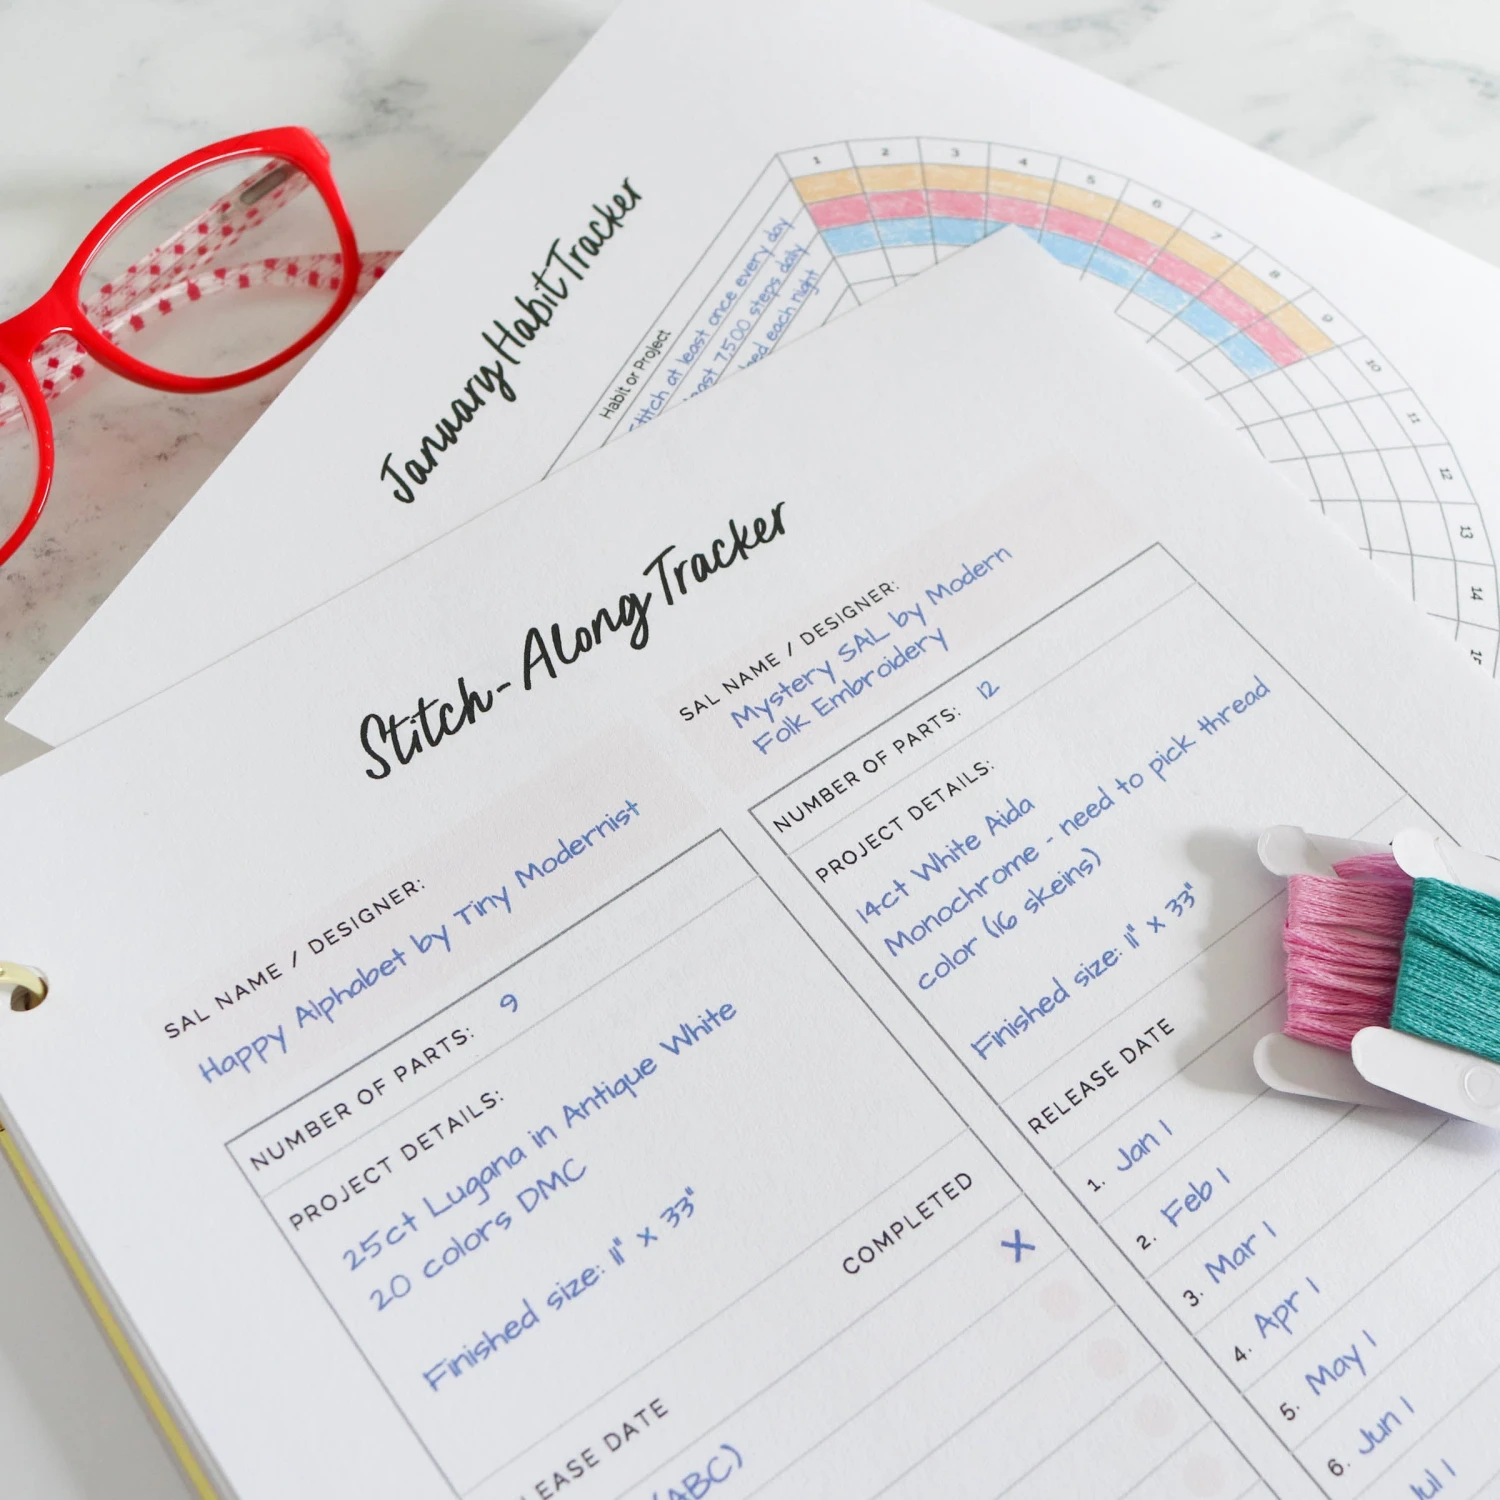 January Habit Tracker
1 2 3 4 5 6 7 8 9 10 11 12 13 14
Habit or Project
Stitch at least once every day
7,500 steps daily
each night
Stitch-Along Tracker
SAL NAME / DESIGNER:
Happy Alphabet by Tiny Modernist
NUMBER OF PARTS: 9
PROJECT DETAILS:
25ct Lugana in Antique White
20 colors DMC
Finished size: 11" x 33"
COMPLETED
X
DATE
(ABC)
SAL NAME / DESIGNER:
Mystery SAL by Modern
Folk Embroidery
NUMBER OF PARTS: 12
PROJECT DETAILS:
14ct White Aida
Monochrome - need to pick thread
color (16 skeins)
Finished size: 11" x 33"
RELEASE DATE
1. Jan 1
2. Feb 1
3. Mar 1
4. Apr 1
5. May 1
6. Jun 1
Jul 1